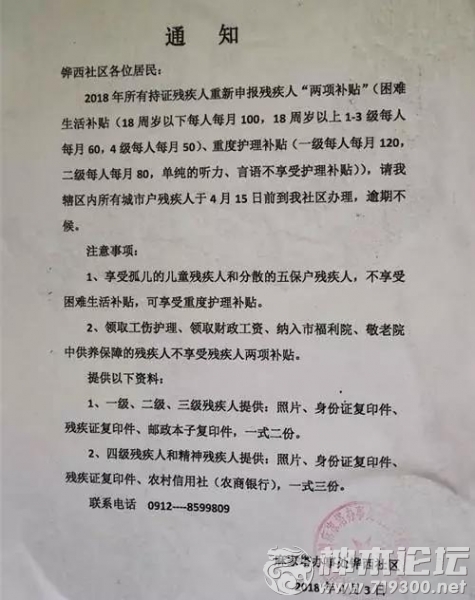 通 知
铧西社区各位居民：
2018 年所有持证残疾人重新申报残疾人“两项补贴”（困难
生活补贴（18 周岁以下每人每月 100，18 周岁以上 1-3 级每人
每月 60，4 级每人每月 50）、重度护理补贴（一级每人每月 120，
二级每人每月 80，单纯的听力、言语不享受护理补贴）），请我
辖区内所有城市户残疾人于 4 月 15 日前到我社区办理，逾期不
候。
注意事项：
1、享受孤儿的儿童残疾人和分散的五保户残疾人，不享受
困难生活补贴，可享受重度护理补贴。
2、领取工伤护理、领取财政工资、纳入市福利院、敬老院
中供养保障的残疾人不享受残疾人两项补贴。
提供以下资料：
1、一级、二级、三级残疾人提供：照片、身份证复印件、
残疾证复印件、邮政本子复印件，一式二份。
2、四级残疾人和精神残疾人提供：照片、身份证复印件、
残疾证复印件、农村信用社（农商银行），一式三份。
联系电话 0912----8599809
家塔办事处铧西社区
2018 年 月 3 日
神木论坛
www.719300.net